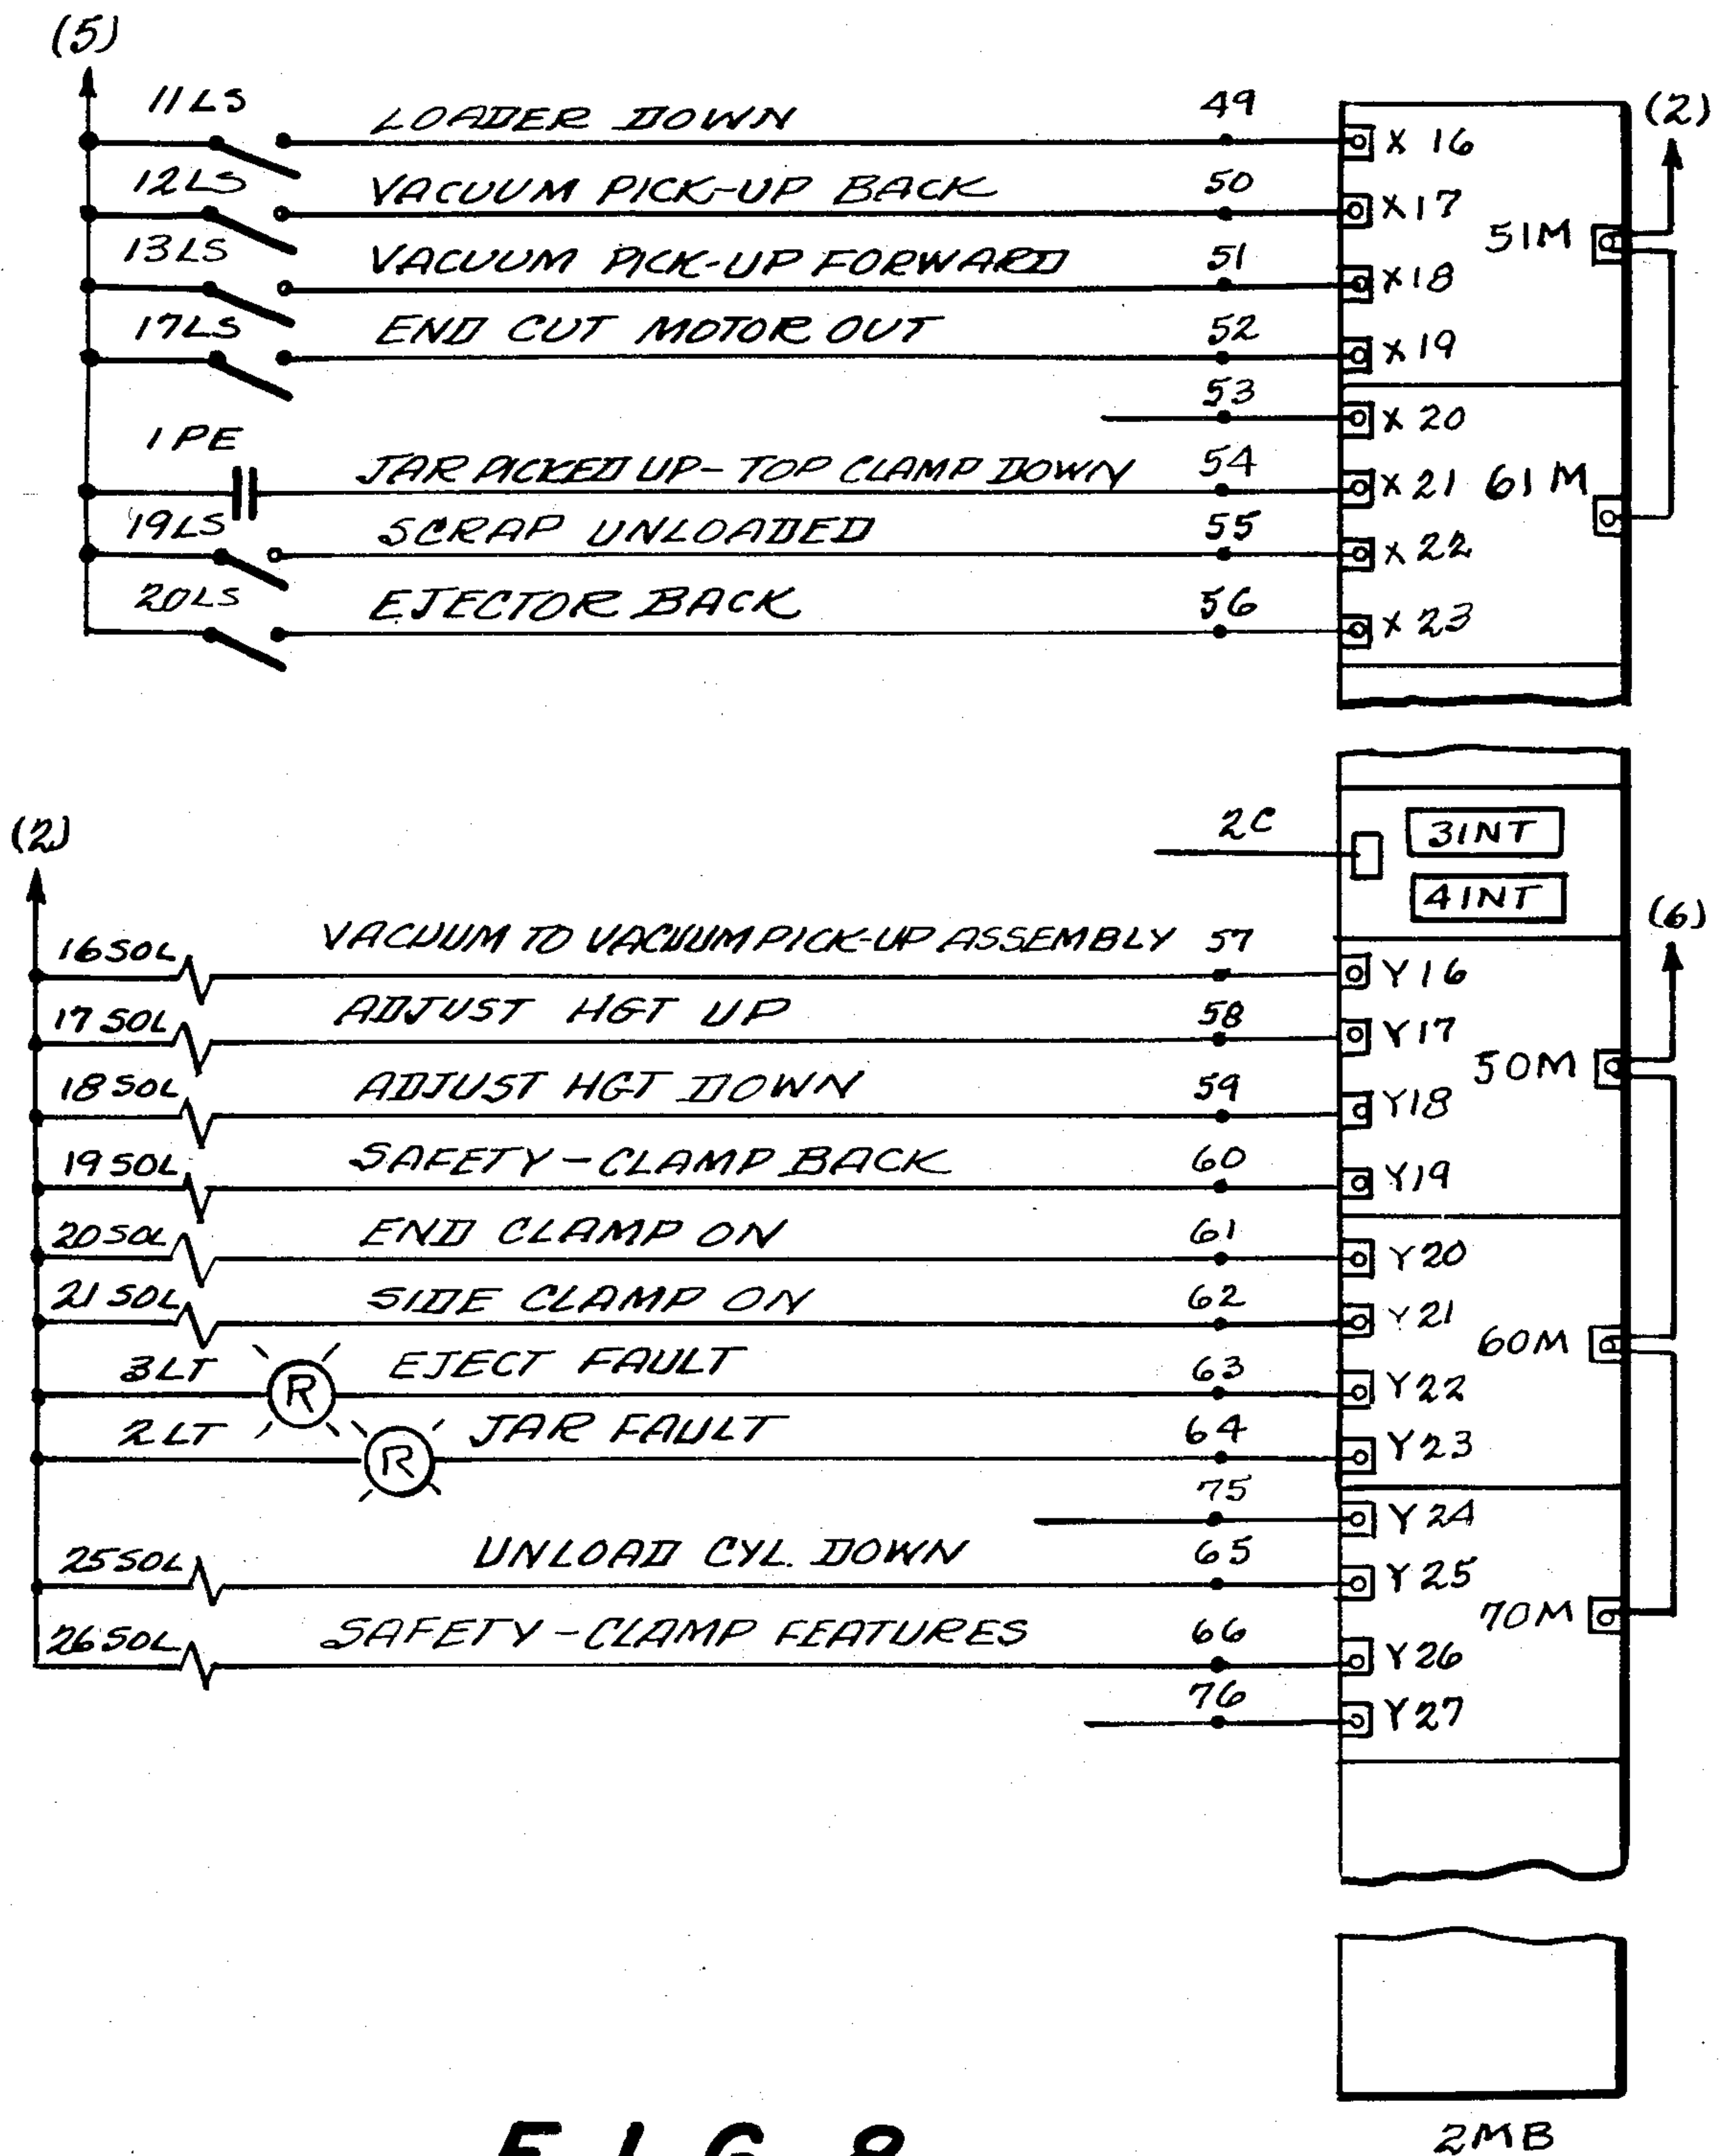 (5)
11LS LOADER DOWN 49 X 16 (2)
12LS VACUUM PICK-UP BACK 50 X17
51M
13LS VACUUM PICK-UP FORWARD 51 X18
17LS END CUT MOTOR OUT 52 X19
53 X 20
1 PE JAR PICKED UP-TOP CLAMP DOWN 54 X 21 61M
19LS SCRAP UNLOADED 55 X 22
20LS EJECTOR BACK 56 X 23
(2)
2C 3INT
4INT
(6)
16SOL VACUUM TO VACUUM PICK-UP ASSEMBLY 57 Y16
17SOL ADJUST HGT UP 58 Y17
50M
18SOL ADJUST HGT DOWN 59 Y18
19SOL SAFETY-CLAMP BACK 60 Y19
20SOL END CLAMP ON 61 Y20
21SOL SIDE CLAMP ON 62 Y21
60M
3LT R EJECT FAULT 63 Y22
2LT R JAR FAULT 64 Y23
75 Y24
25SOL UNLOAD CYL. DOWN 65 Y25
70M
26SOL SAFETY-CLAMP FEATURES 66 Y26
76 Y27
2MB
FIG 8